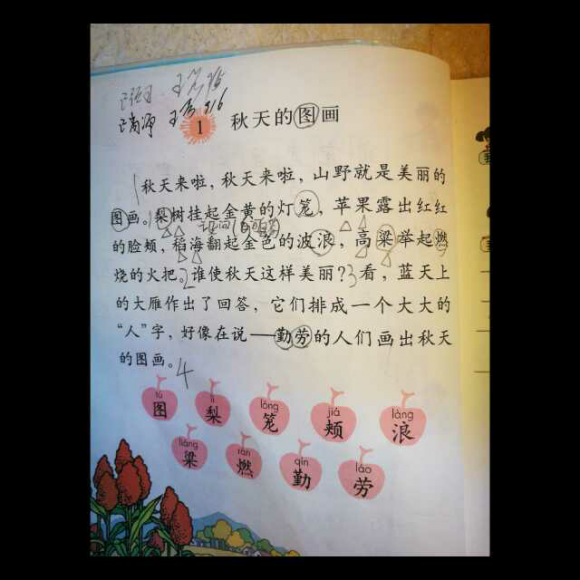 1 秋天的图画
秋天来啦，秋天来啦，山野就是美丽的
图画。梨树挂起金黄的灯笼，苹果露出红红
的脸颊，稻海翻起金色的波浪，高粱举起燃
烧的火把。谁使秋天这样美丽？看，蓝天上
的大雁作出了回答，它们排成一个大大的
“人”字，好像在说——勤劳的人们画出秋天
的图画。
4
tú lí lóng jiá làng
图 梨 笼 颊 浪
liáng rán qín láo
梁 燃 勤 劳